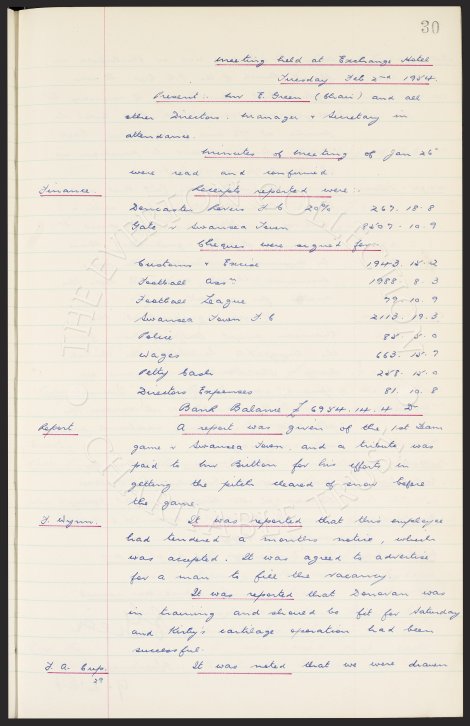 30
Meeting held at Exchange Hotel
Tuesday Feb 2nd 1954.
Present:- Mr E. Green (Chair) and all
other Directors. Manager & Secretary in
attendance.
Minutes of Meeting of Jan 26
were read and confirmed.
Finance. Receipts reported were:-
Doncaster Rovers F C 20% 267. 18. 8
Gate v Swansea Town 8507. 10. 9
Cheques were signed for:-
Customs & Excise 1943. 15. 2
Football Assn 1988. 8. 3
Football League 79. 10. 9
Swansea Town F C 2113. 19. 3
Police 85. 5. 0
Wages 663. 15. 7
Petty Cash 258. 15. 0
Directors Expenses 81. 10. 8
Bank Balance £ 6954. 14. 4 Dr
Report A report was given of the 1st Team
game v Swansea Town, and a tribute was
paid to Mr Button for his efforts in
getting the pitch cleared of snow before
the game.
F. Wynn. It was reported that this employee
had tendered a months notice, which
was accepted. It was agreed to advertise
for a man to fill the vacancy
It was reported that Donovan was
in training and should be fit for Saturday
and Kirby's cartilage operation had been
successful.
F. A. Cup. It was noted that we were drawn